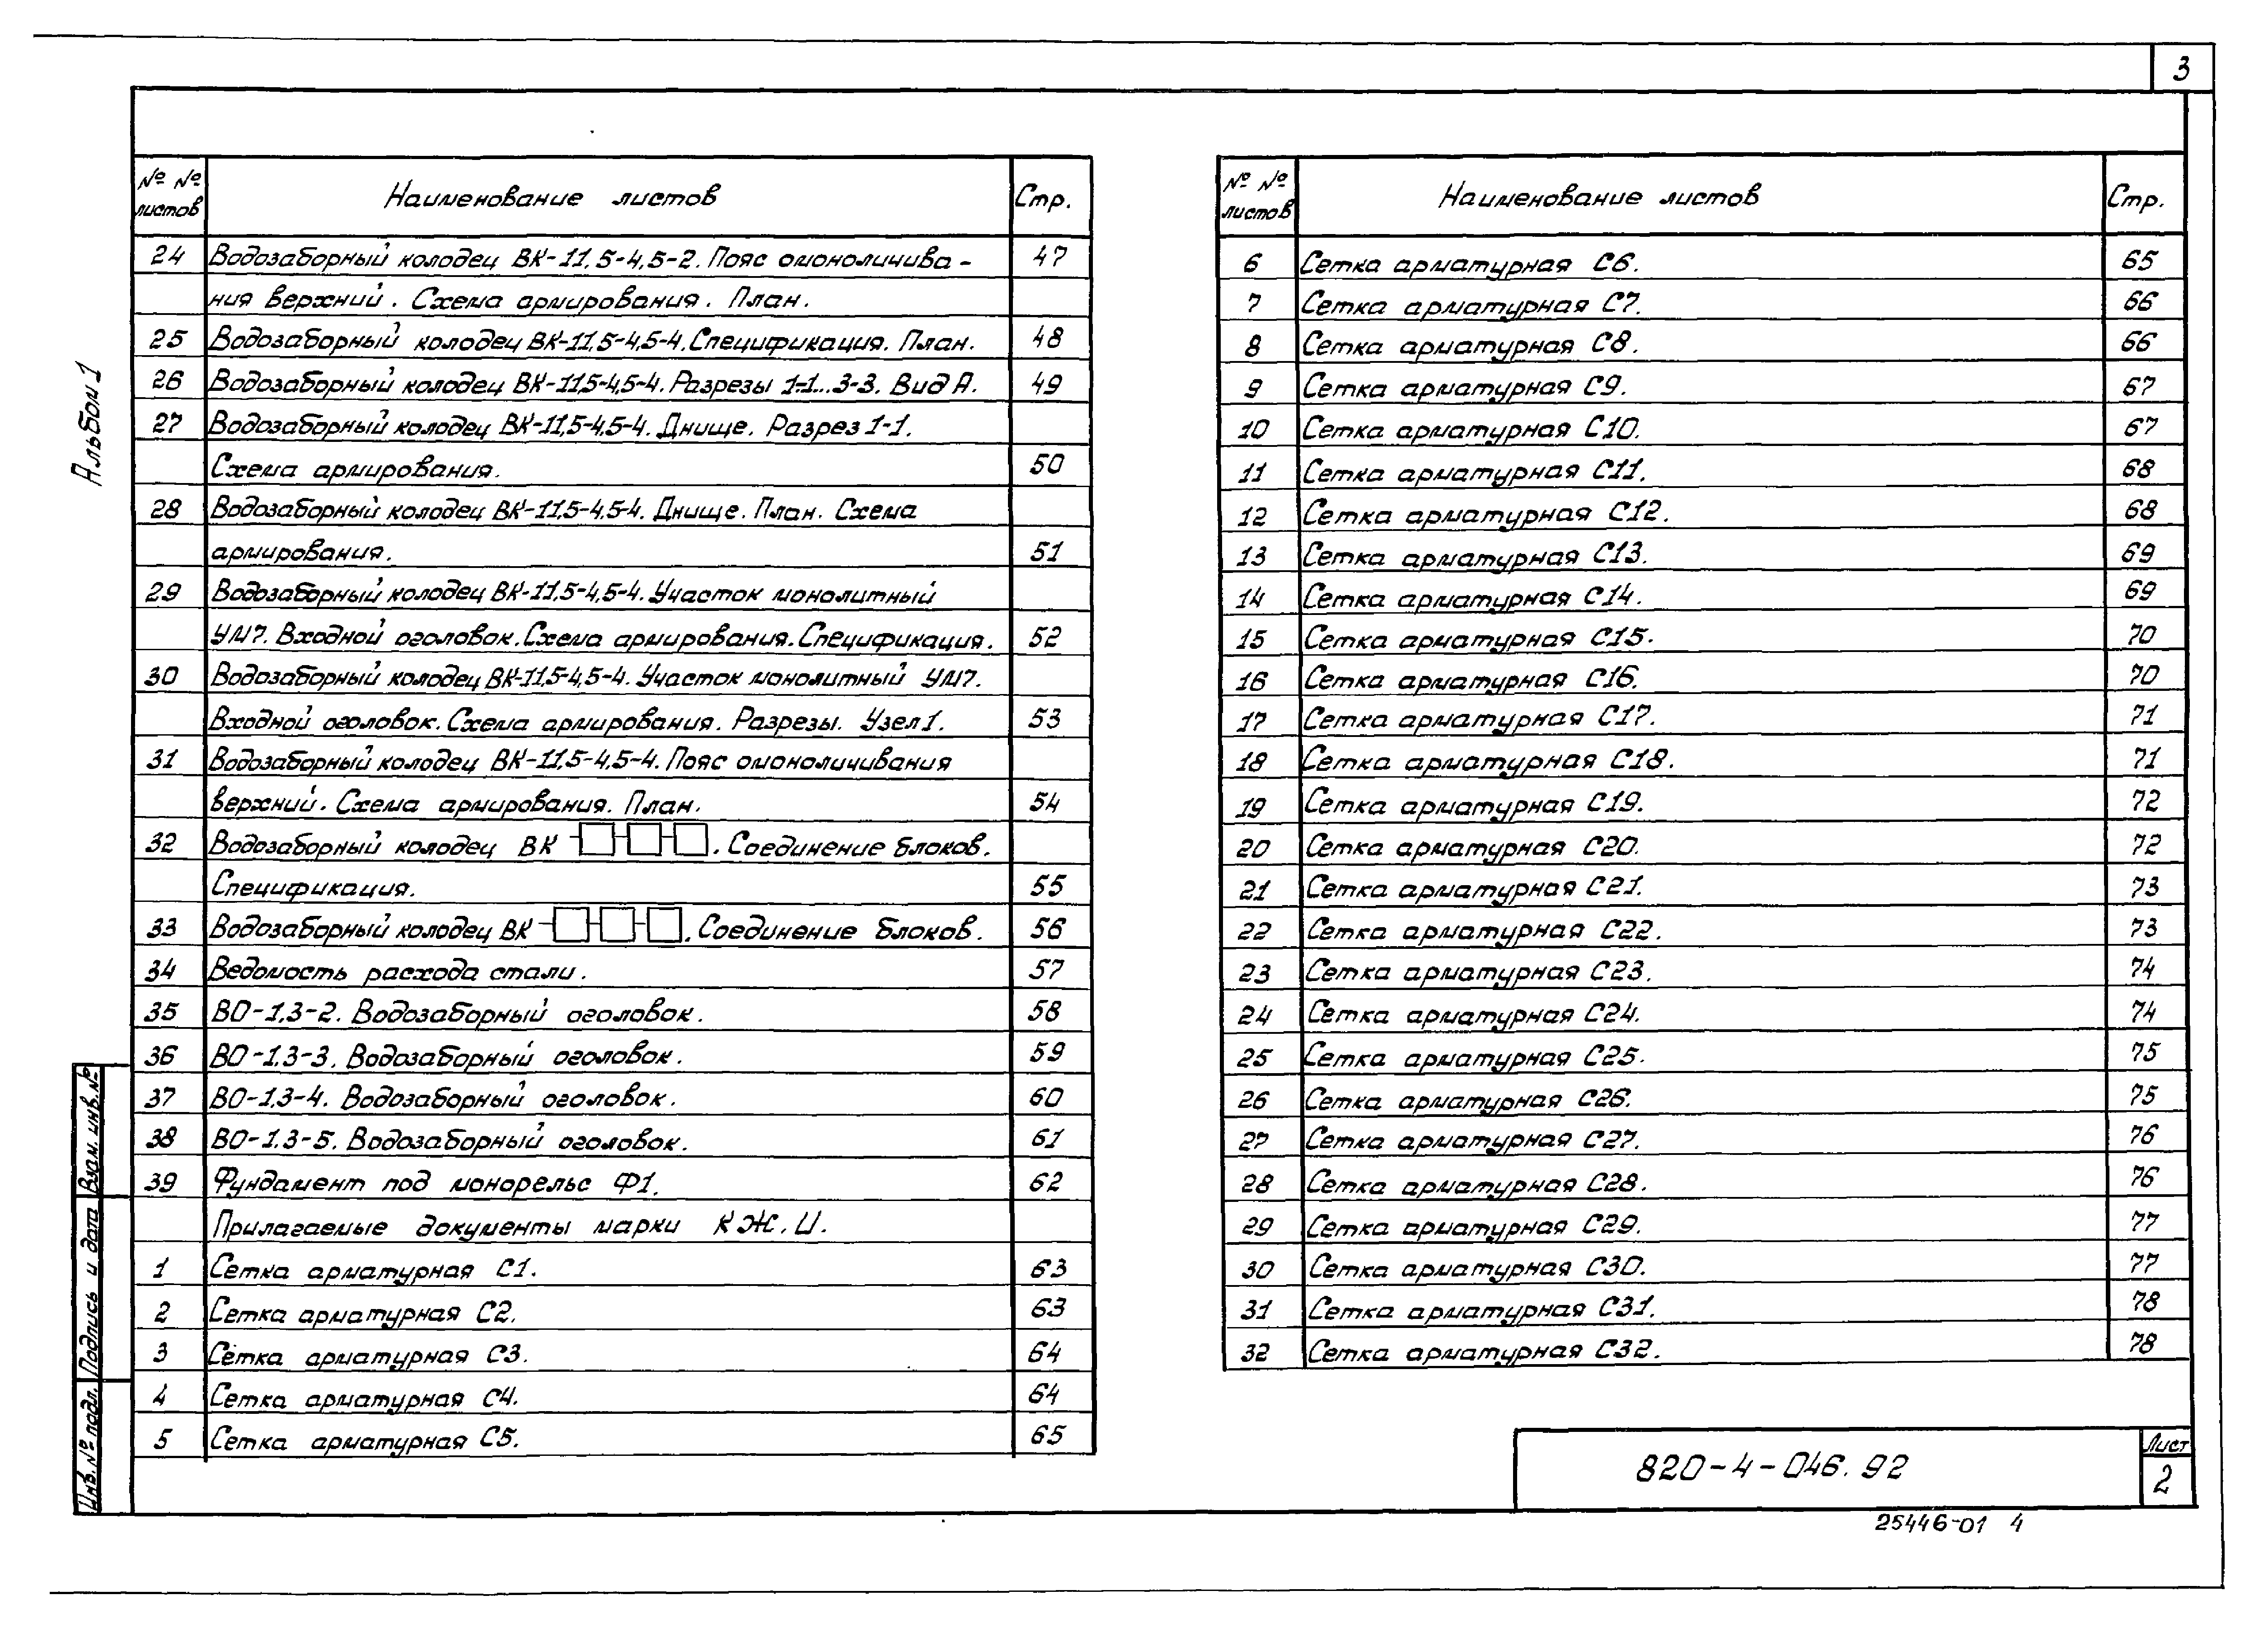 3
Альбом 1
№ № листов Наименование листов Стр.
24 Водозаборный колодец ВК-11,5-4,5-2. Пояс омоноличива- 47
ния верхний. Схема армирования. План.
25 Водозаборный колодец ВК-11,5-4,5-4. Спецификация. План. 48
26 Водозаборный колодец ВК-11,5-4,5-4. Разрезы 1-1...3-3. Вид А. 49
27 Водозаборный колодец ВК-11,5-4,5-4. Днище. Разрез 1-1.
Схема армирования. 50
28 Водозаборный колодец ВК-11,5-4,5-4. Днище. План. Схема
армирования. 51
29 Водозаборный колодец ВК-11,5-4,5-4. Участок монолитный
УМ7. Входной оголовок. Схема армирования. Спецификация. 52
30 Водозаборный колодец ВК-11,5-4,5-4. Участок монолитный УМ7.
Входной оголовок. Схема армирования. Разрезы. Узел 1. 53
31 Водозаборный колодец ВК-11,5-4,5-4. Пояс омоноличивания
верхний. Схема армирования. План. 54
32 Водозаборный колодец ВК-□-□-□. Соединение блоков.
Спецификация. 55
33 Водозаборный колодец ВК-□-□-□. Соединение блоков. 56
34 Ведомость расхода стали. 57
35 ВО-1,3-2. Водозаборный оголовок. 58
36 ВО-1,3-3. Водозаборный оголовок. 59
37 ВО-1,3-4. Водозаборный оголовок. 60
38 ВО-1,3-5. Водозаборный оголовок. 61
39 Фундамент под монорельс Ф1. 62
Прилагаемые документы марки КЖ.И.
1 Сетка арматурная С1. 63
2 Сетка арматурная С2. 63
3 Сетка арматурная С3. 64
4 Сетка арматурная С4. 64
5 Сетка арматурная С5. 65
№ № листов Наименование листов Стр.
6 Сетка арматурная С6. 65
7 Сетка арматурная С7. 66
8 Сетка арматурная С8. 66
9 Сетка арматурная С9. 67
10 Сетка арматурная С10. 67
11 Сетка арматурная С11. 68
12 Сетка арматурная С12. 68
13 Сетка арматурная С13. 69
14 Сетка арматурная С14. 69
15 Сетка арматурная С15. 70
16 Сетка арматурная С16. 70
17 Сетка арматурная С17. 71
18 Сетка арматурная С18. 71
19 Сетка арматурная С19. 72
20 Сетка арматурная С20. 72
21 Сетка арматурная С21. 73
22 Сетка арматурная С22. 73
23 Сетка арматурная С23. 74
24 Сетка арматурная С24. 74
25 Сетка арматурная С25. 75
26 Сетка арматурная С26. 75
27 Сетка арматурная С27. 76
28 Сетка арматурная С28. 76
29 Сетка арматурная С29. 77
30 Сетка арматурная С30. 77
31 Сетка арматурная С31. 78
32 Сетка арматурная С32. 78
Инв. № подл. Подпись и дата Взам. инв. №
820-4-046.92
Лист
2
25446-01 4